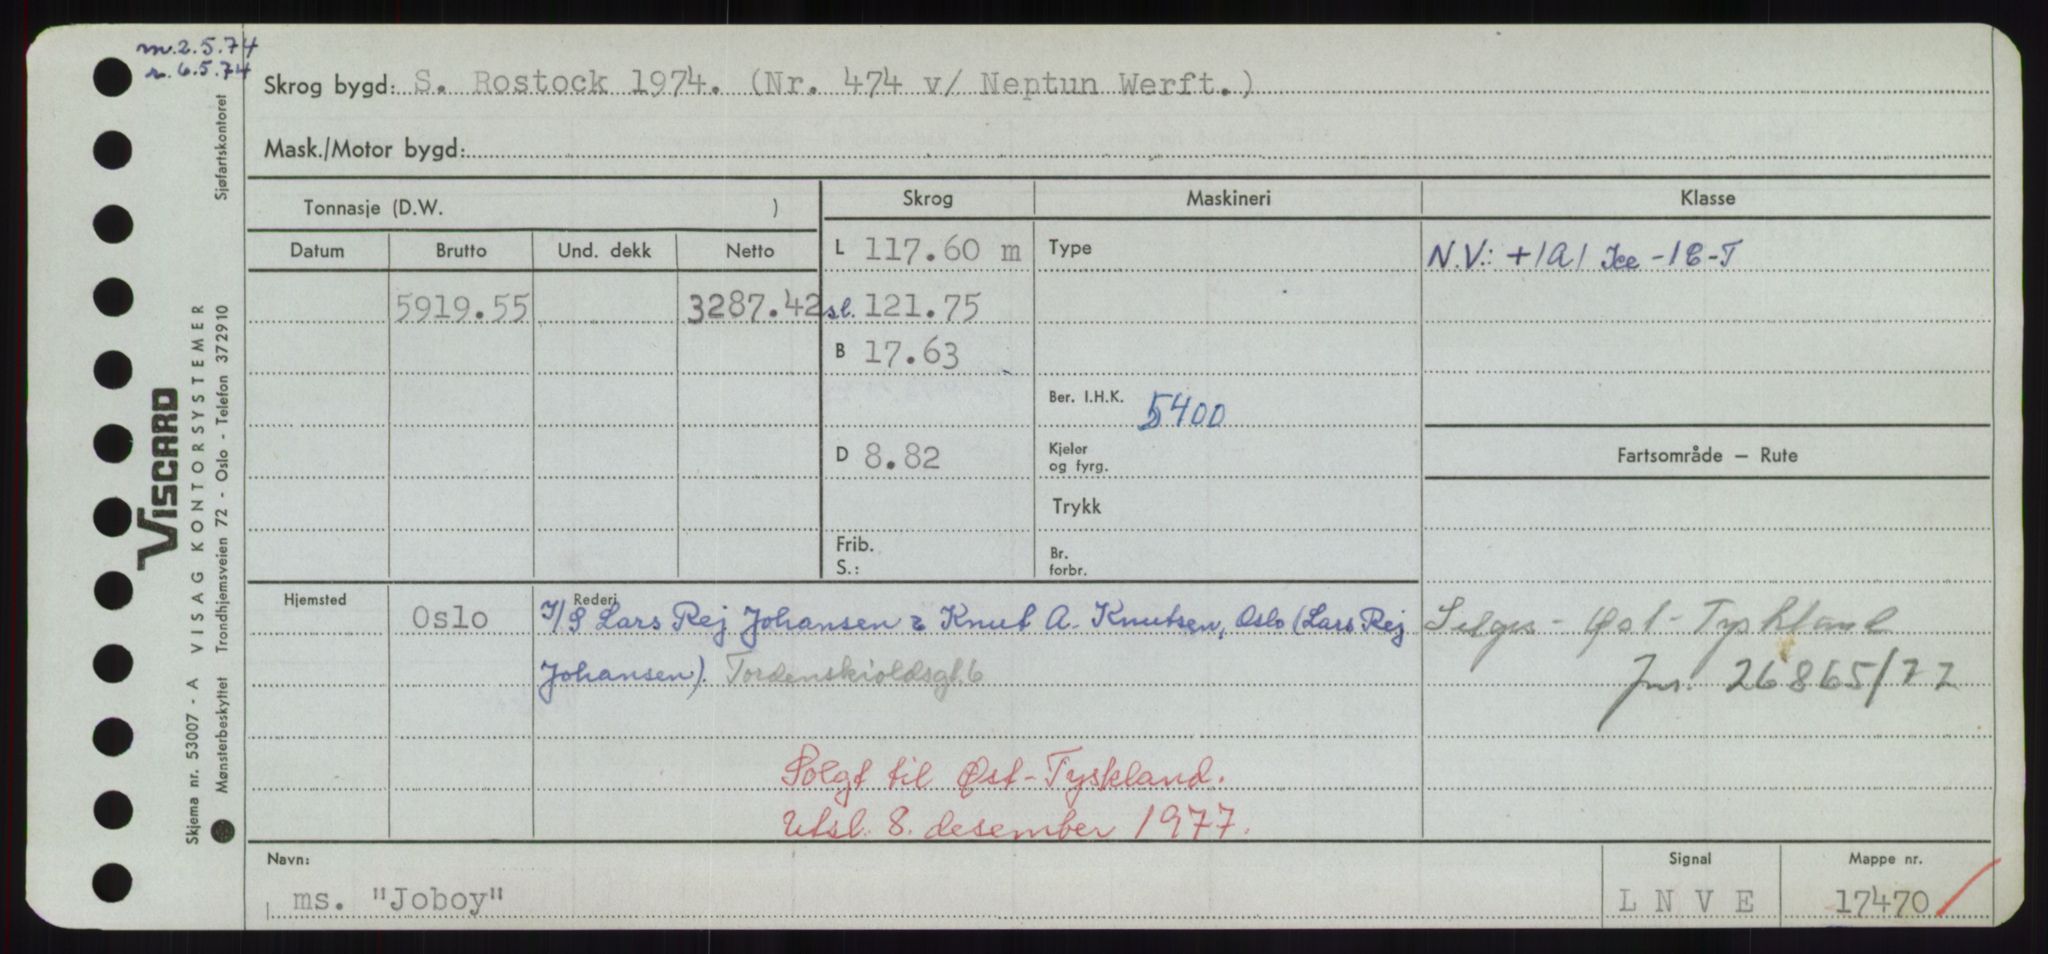 m. 2.5.74
r. 6.5.74
Sjøfartskontoret
Skrog bygd: S. Rostock 1974. (Nr. 474 v/ Neptun Werft.)
Mask./Motor bygd:
Tonnasje (D.W. )
Skrog
Maskineri
Klasse
Datum
Brutto
Und. dekk
Netto
L 117.60 m
Type
N.V.: +1A1 Ice-1C-T
5919.55
3287.42
sl. 121.75
B 17.63
Ber. I.H.K. 5400
D 8.82
Kjeler
og fyrg.
Fartsområde – Rute
Trykk
Frib.
S.:
Br.
forbr.
Hjemsted
Oslo
Rederi
I/S Lars Rej Johansen & Knut A. Knutsen, Oslo (Lars Rej
Johansen). Tordenskioldsgt. 6
Selges - Øst-Tyskland
Jnr. 26865/77
Solgt til Øst-Tyskland.
Utsl. 8. desember 1977.
Navn:
ms. "Joboy"
Signal
L N V E
Mappe nr.
17470
VISCARD
Skjema nr. 53007 - A VISAG KONTORSYSTEMER
Mønsterbeskyttet Trondhjemsveien 72 - Oslo - Telefon 372910